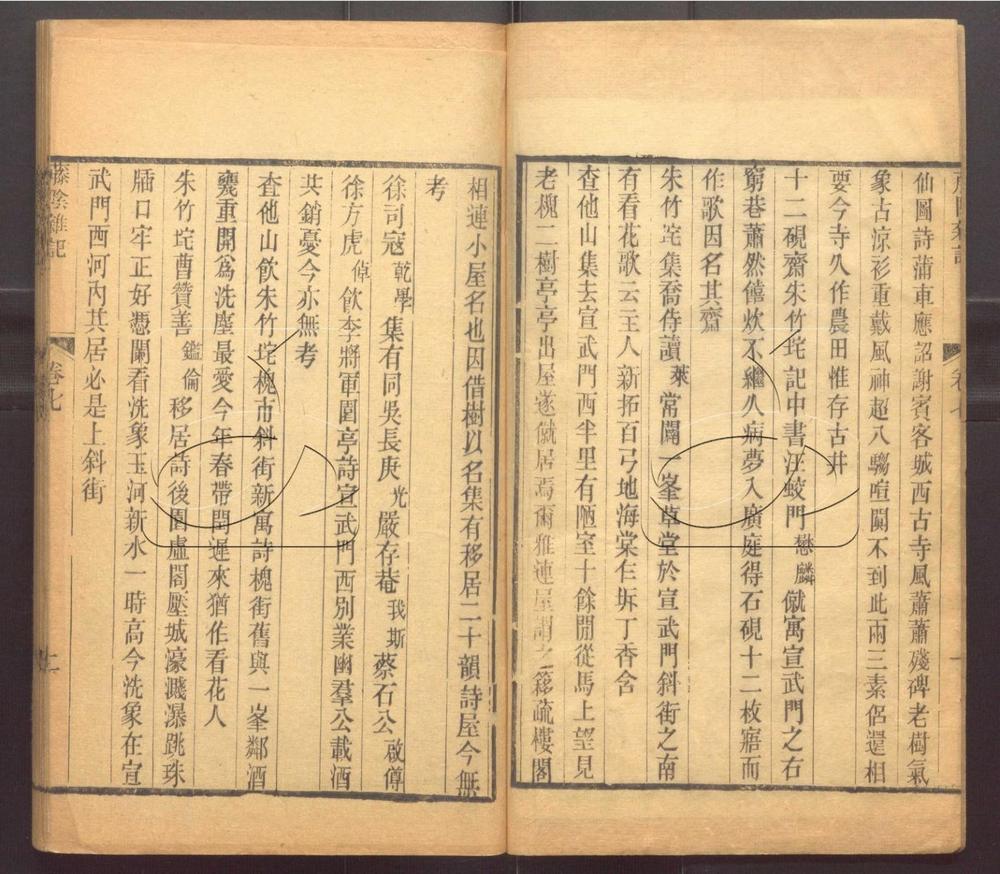 仙圖詩蒲車應詔謝賓客城西古寺風蕭蕭殘碑老樹氣
象古涼衫重戴風神超八騶喧闐不到此兩三素侶還相
要今寺久作農田惟存古井
十二硯齋朱竹垞記中書汪蛟門懋麟僦寓宣武門之右
窮巷蕭然饎炊不繼久病夢入廣庭得石硯十二枚寤而
作歌因名其齋
朱竹垞集喬侍讀萊常闢一峯草堂於宣武門斜街之南
有看花歌云主人新拓百弓地海棠乍坼丁香含
查他山集去宣武門西半里有陋室十餘閒從馬上望見
老槐二樹亭亭出屋遂僦居焉爾雅連屋謂之簃疏樓閣
相連小屋名也因借樹以名集有移居二十韻詩屋今無
考
徐司寇乾學集有同吳長庚光嚴存菴我斯蔡石公啟僔
徐方虎倬飲李將軍園亭詩宣武門西別業幽羣公載酒
共銷憂今亦無考
查他山飲朱竹垞槐市斜街新寓詩槐街舊與一峯鄰酒
甕重開爲洗塵最愛今年春帶閏遲來猶作看花人
朱竹垞曹贊善鑑倫移居詩後園虛閣壓城濠濺瀑跳珠
牐口牢正好憑闌看洗象玉河新水一時高今洗象在宣
武門西河內其居必是上斜街
藤陰雜記
卷七